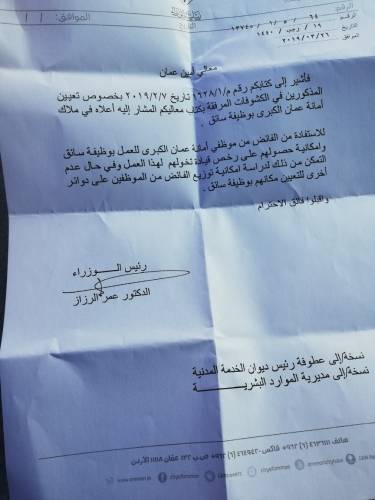 الرقم ٦٤ / ٥ / ١ / ١٣٧٤٥
التاريخ ١٩ / رجب / ١٤٤٠
الموافق ٢٠١٩/٠٣/٢٦
الموافق: / /
معالي أمين عمان
فأشير إلى كتابكم رقم م/١٦٢٨/١ تاريخ ٢٠١٩/٢/٧ بخصوص تعيين
المذكورين في الكشوفات المرفقة بكتاب معاليكم المشار إليه أعلاه في ملاك
أمانة عمان الكبرى بوظيفة سائق
للاستفادة من الفائض من موظفي أمانة عمان الكبرى للعمل بوظيفة سائق
وإمكانية حصولهم على رخص قيادة تخولهم لهذا العمل وفي حال عدم
التمكن من ذلك لدراسة امكانية توزيع الفائض من الموظفين على دوائر
أخرى للتعيين مكانهم بوظيفة سائق .
واقبلوا فائق الاحترام
رئيس الـــوزراء
الدكتور عمر الرزاز
نسخة/إلى عطوفة رئيس ديوان الخدمة المدنية
نسخة/إلى مديرية الموارد البشريـــــة
هاتف ٤٦٣٦١١١ (٦) ٩٦٢+ فاكس ٤٦٤٩٤٢٠ (٦) ٩٦٢+ ص.ب ١٣٢ عمان ١١١١٨ الأردن